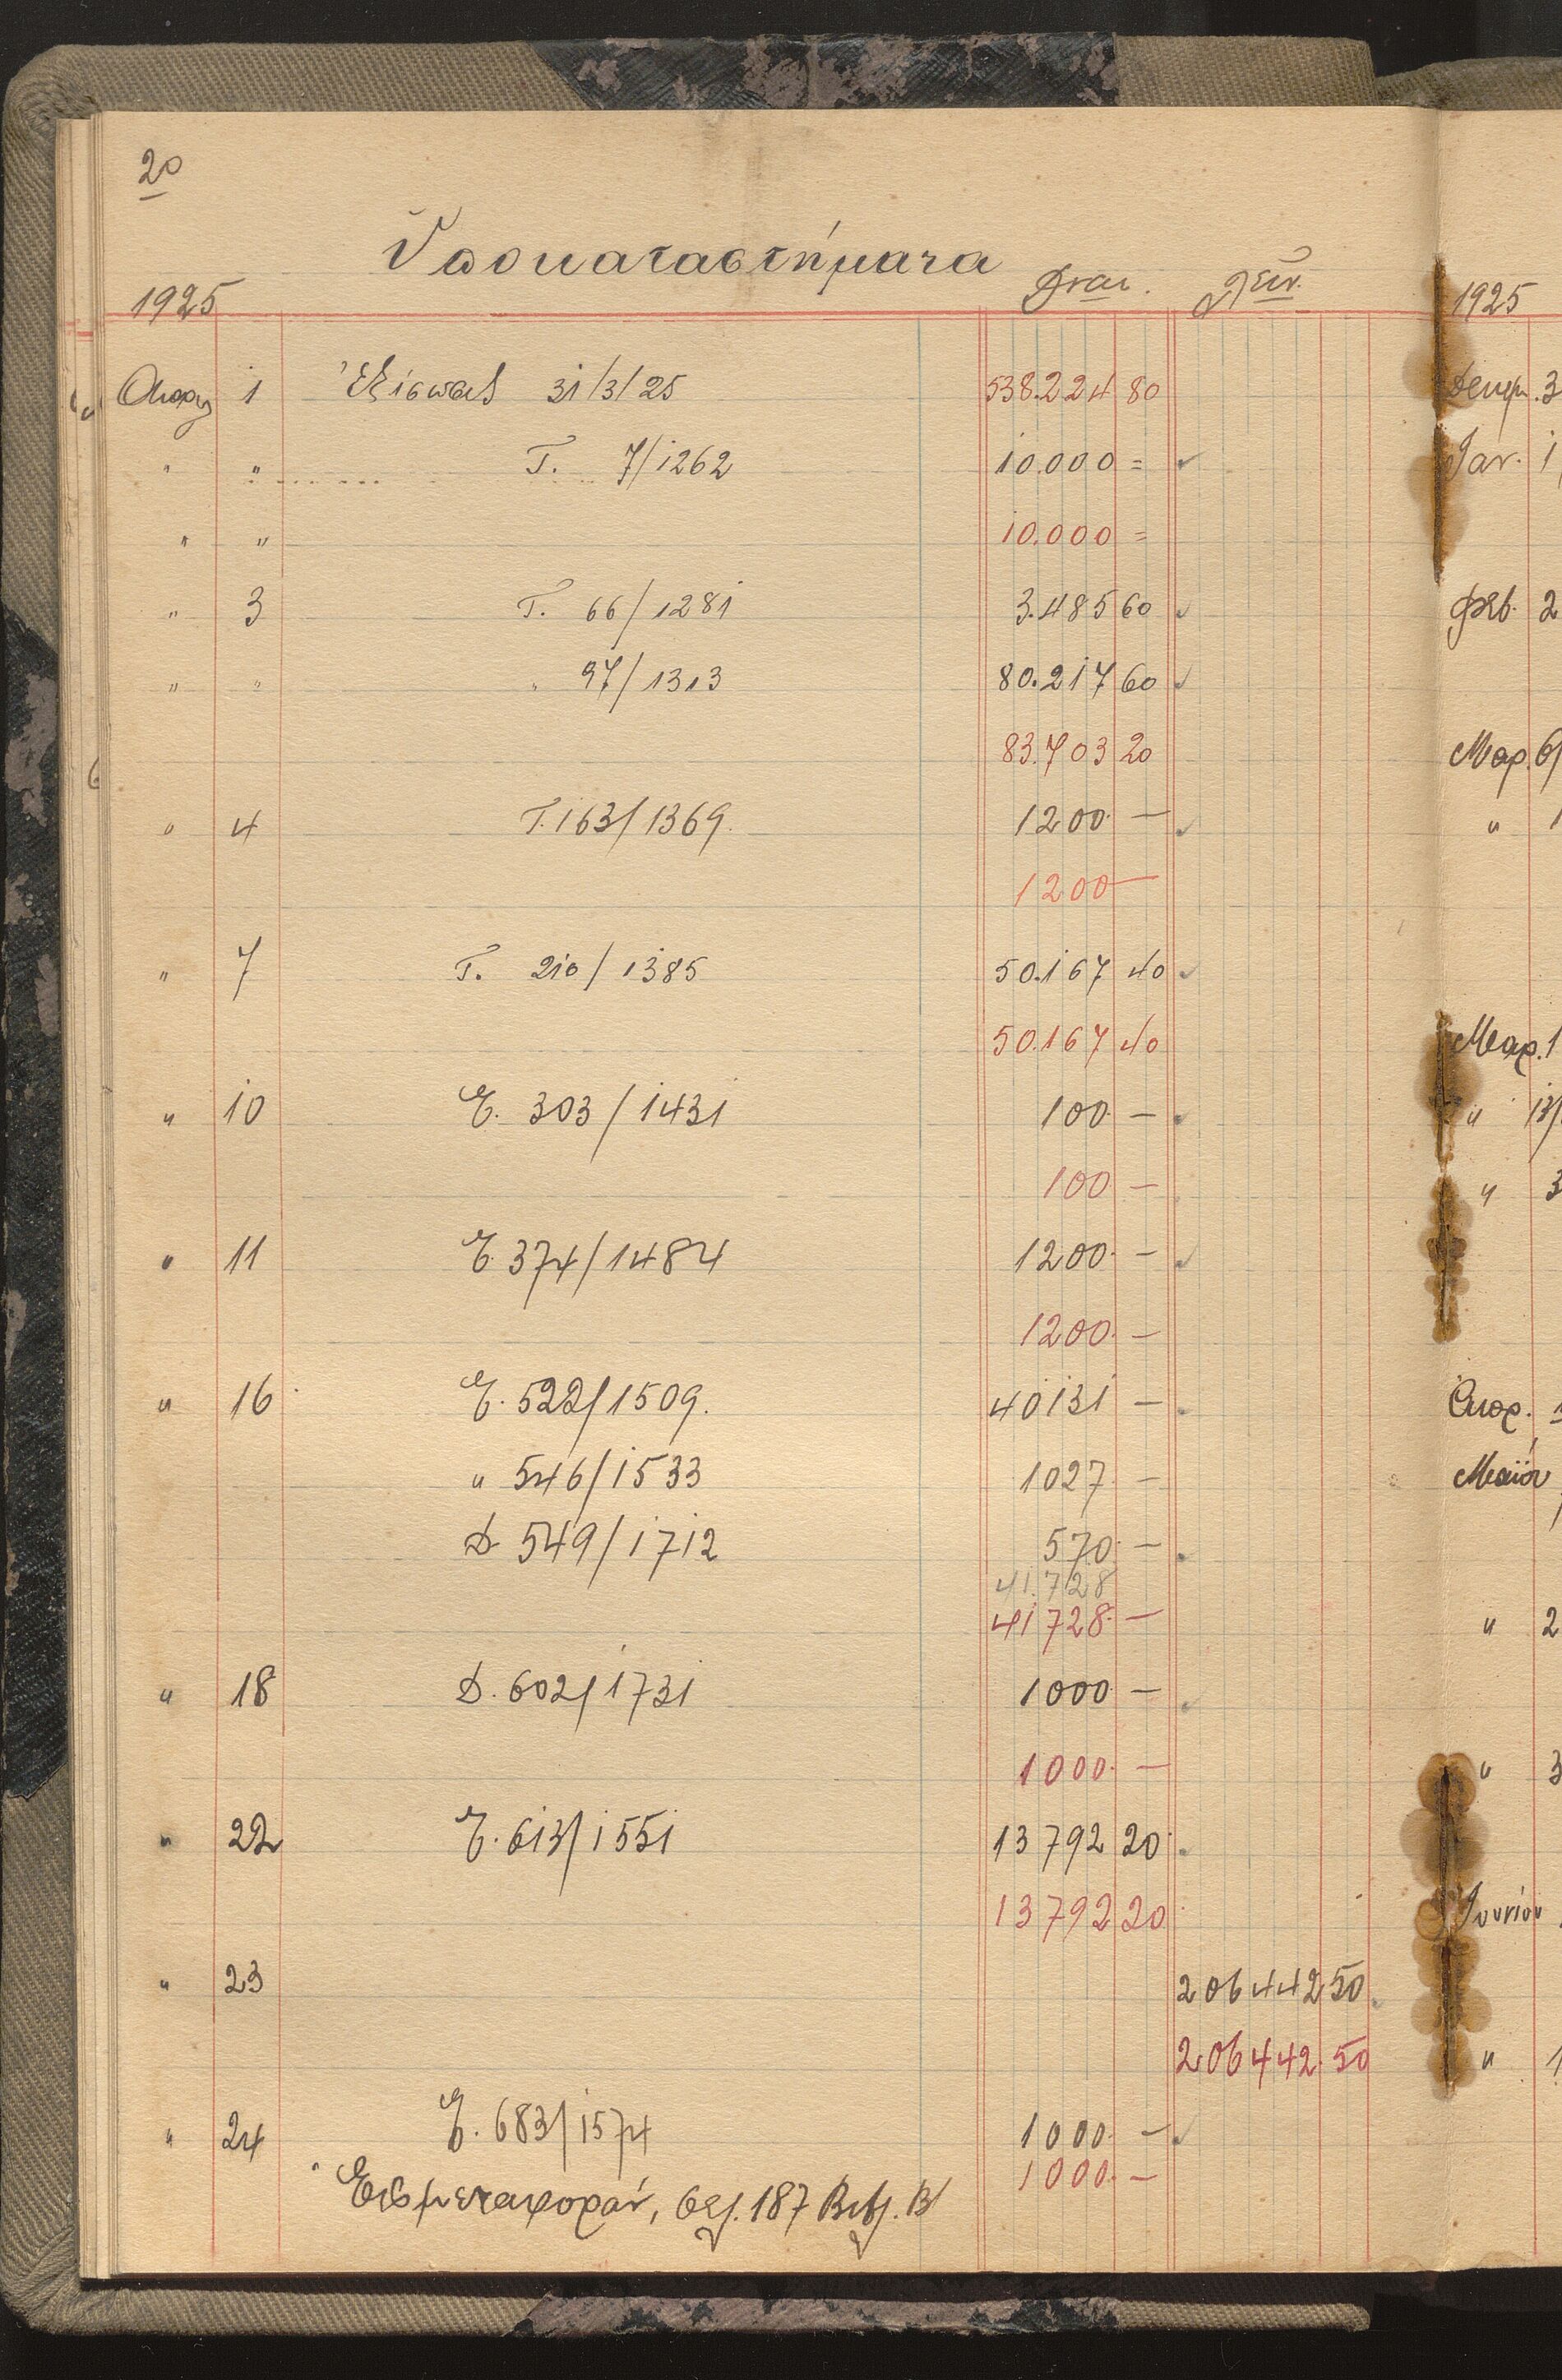 20
Ὑποκαταστήματα
1925 Δραχ. Λεπτ.
Απριλ 1 Ἐξίσωσις 31/3/25 538.224 80
" " Τ. 7/1262 10.000 =
" " 10.000 =
" 3 Τ. 66/1281 3.485 60
" " " 97/1313 80.217 60
83.703 20
" 4 Τ. 163/1369. 1200 —
1200 —
" 7 Τ. 210/1385 50.167 40
50.167 40
" 10 Ε. 303/1431 100 —
100 —
" 11 Ε. 374/1484 1200 —
1200 —
" 16 Ε. 522/1509. 40131 —
" 546/1533 1027 —
D. 549/1712 570 —
41.728
41728 —
" 18 D. 602/1731 1000 —
1000 —
" 22 Ε. 613/1551 13792 20
13792 20
" 23 206442 50
206442 50
" 24 Ε. 683/1574 1000 —
1000 —
Εἰς μεταφοράν, σελ. 187 Βιβλ. Β'
1925
Δεκεμ. 3
Ἰαν. 1
Φεβ. 2
Μαρ. 6/
" 1
Μαρ. 1
" 13/
" 3
Απρ. 1
Μαΐου
" 2
" 3
Ἰουνίου
" 1